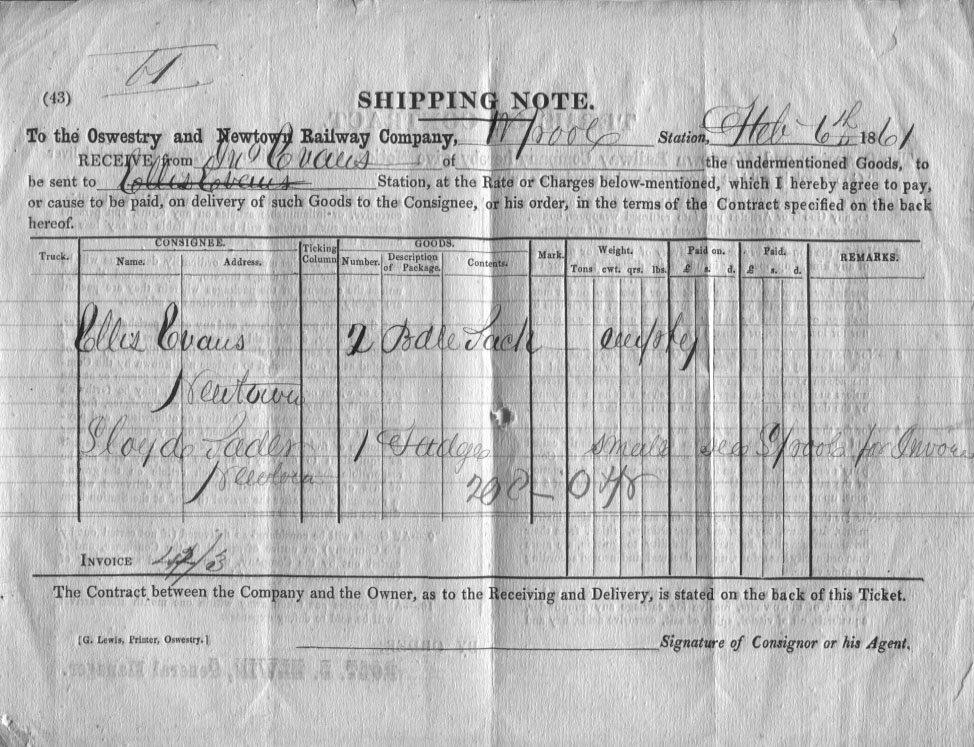 (43)
SHIPPING NOTE.
To the Oswestry and Newtown Railway Company, W pool Station, Feb 6th 1861
RECEIVE from Jno Evans of the undermentioned Goods, to
be sent to Ellis Evans Station, at the Rate or Charges below-mentioned, which I hereby agree to pay,
or cause to be paid, on delivery of such Goods to the Consignee, or his order, in the terms of the Contract specified on the back
hereof.
Truck. CONSIGNEE. Ticking Column GOODS. Mark. Weight. Paid on. Paid. REMARKS.
Name. Address. Number. Description of Package. Contents. Tons cwt. qrs. lbs. £ s. d. £ s. d.
Ellis Evans 2 Bdle Sack empty
Newtown
Lloyd 1 small for Invoice
Newtown
INVOICE
The Contract between the Company and the Owner, as to the Receiving and Delivery, is stated on the back of this Ticket.
[G. Lewis, Printer, Oswestry.]
Signature of Consignor or his Agent.